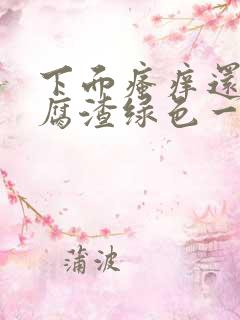 下面瘙痒還
腐渣绿色一
蒲波